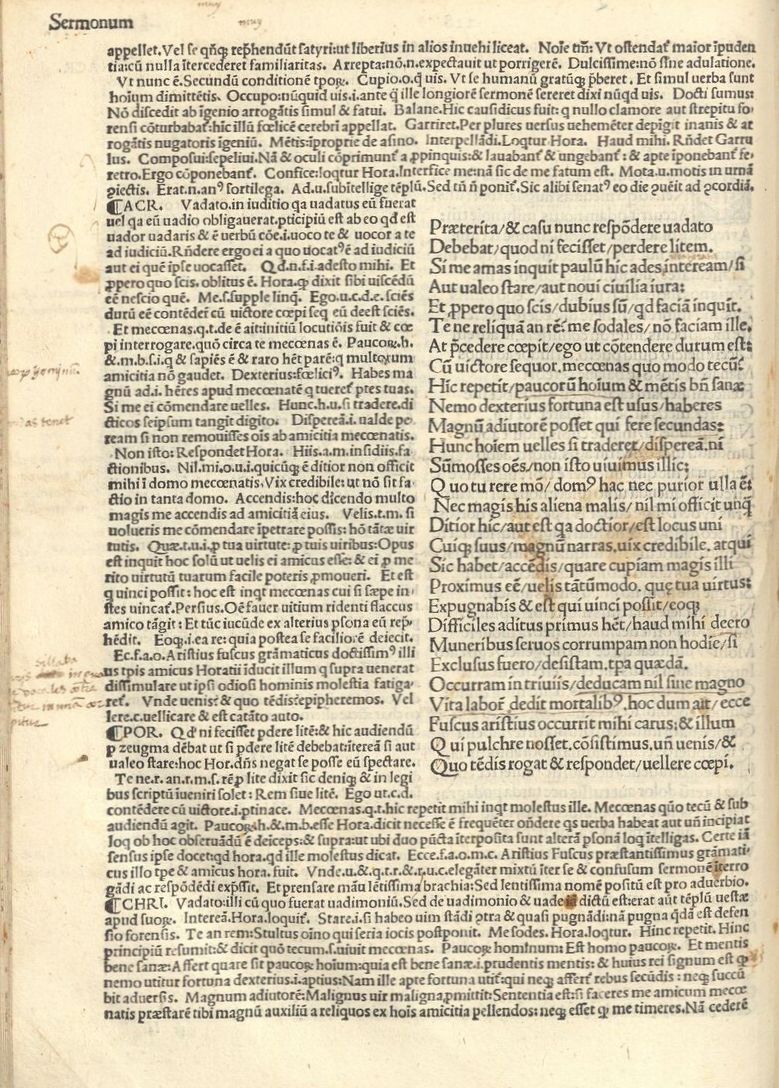 Sermonum
muy
muy
appellet. Vel se qñq; rep̄hendūt satyri: ut liberius in alios inuehi liceat. Noīe tm̄: Vt ostendat᷑ maior īpuden
tia: cū nulla ītercederet familiaritas. Arrepta: nō.n.expectauit ut porrigerē. Dulcissime: nō sīne adulatione.
Vt nunc ē. Secundū conditionē tpoꝝ. Cupio.o.q̄ uis. Vt se humanū gratūq; p̱beret. Et simul uerba sunt
hoīum dimittētis. Occupo: nūquid uis.i.ante q̄ ille longiorē sermonē sereret dixi nūqd uis. Docti sumus:
Nō discedit ab īgenio arrogātis simul & fatui. Balane. Hic causidicus fuit: q nullo clamore aut strepitu fo-
rensi cōturbabat᷑: hic illū fœlicē cerebri appellat. Garriret. Per plures uersus uehemēter depigit inanis & ar
rogātis nugatoris īgeniū. Mētis: īproprie de asino. Interpellādi. Loqtur Hora. Haud mihi. Rñdet Garru
lus. Composui: sepeliui. Nā & oculi cōprimunt᷑ a ꝓpinquis: & lauabant᷑ & ungebant᷑: & apte īponebant᷑ fe-
retro. Ergo cōponebant᷑. Confice: loqtur Hora. Interfice me: nā sic de me fatum est. Mota.u. motis in urnā
ꝓiectis. Erat.n.anꝰ sortilega. Ad.u. subītellige tēplū. Sed tñ ñ ponit᷑. Sic alibi senatꝰ eo die q̄uēit ad ꝯcordiā.
¶ACR. Vadato. in iuditio qa uadatus eū fuerat
uel qa eū uadio obligauerat. pticipiū est ab eo qd est
uador uadaris & ē uerbū cōe.i.uoco te & uocor a te
ad iudiciū. Rñdere ergo ei a quo uocatꝰ ē ad iudiciū
aut ei quē ipse uocasset. Qd.n.f.i adesto mihi. Et
ꝓpero quo scis. oblitus ē. Hora. ꝙ dixit sibi uisēdū
eē nescio quē. Me.s. supple linq̄. Ego.u.c.d.e. sciēs
durū eē contēdeť cū uictore cœpi seq eū deest sciēs.
Et mecœnas.q.t.de ē aīt: initiū locutiōis fuit & cœ
pi interrogare. quō circa te mecœnas ē. Paucoꝝ.h.
& m.b.s.i.q & sapiēs ē & raro hēt parē: q multoꝝum
amicitia nō gaudet. Dexterius: fœliciꝰ. Habes ma
gnū ad.i. hēres apud mecœnatē q tueret᷑ ptes tuas.
Si me ei cōmendare uelles. Hunc.h.u. si tradere. di
cticos seipsum tangit digito. Dispereā.i. ualde pe-
ream si non remouisses oīs ab amicitia mecœnatis.
Non isto: Respondet Hora. Hiis.a.m. insidiis. fa-
ctionibus. Nil.mi.o.u.i. quicūq; ē ditior non officit
mihi ī domo mecœnatis. Vix credibile: ut nō sit fa-
ctio in tanta domo. Accendis: hoc dicendo multo
magis me accendis ad amicitiā eius. Velis.t.m. si
uolueris me cōmendare īpetrare possis: hō tātæ uir
tutis. Quæ.t.u.i. ꝓ tua uirtute: ꝓ tuis uiribus: Opus
est inquit hoc solū ut uelis ei amicus esse: & ei ꝓ me
rito uirtutū tuarum facile poteris ꝓmoueri. Et est
q uinci possit: hoc est inqt mecœnas cui si sæpe in-
stes uincat᷑. Persius. Oē uafer uitium ridenti flaccus
amico tāgit: Et tūc iucūde ex alterius psona eū rep̄-
hēdit. Eoq;.i. ea re: quia postea se faciliorē deiecit.
Ec.f.a.o. Aristius fuscus grāmaticus doctissimꝰ illi
us tpis amicus Horatii iducit illum q supra uenerat
dissimulare ut ipsi odiosi hominis molestia fatiga-
ret᷑. Vnde uenis: & quo tēdis: epipheremos. Vel
lere.c. uellicare & est catāto auto.
¶POR. Qd ni fecisset pdere litē: & hic audiendū
p zeugma dēbat ut si pdere litē debebat: ītereā si aut
ualeo stare: hoc Hor. dñs negat se posse eū spectare.
Te ne.r.an.r.m.s. rē p lite dixit sic deniq; & in legi
bus scriptū iueniri solet: Rem siue litē. Ego ut.c.d.
Præterita/ & casu nunc respōdere uadato
Debebat/ quod ni fecisset/ perdere litem.
Si me amas inquit paulū hic ades. intereram/ si
Aut ualeo stare/ aut noui ciuilia iura:
Et ꝓpero quo scis/ dubius sū/ qd faciā inquit.
Te ne reliquā an rē: me sodales/ nō faciam ille.
At p̄cedere cœpit/ ego ut cōtendere durum est:
Cū uictore sequor. mecœnas quo modo tecū:
Hic repetit/ paucorū hoium & mētis bñ sanæ
Nemo dexterius fortuna est usus/ haberes
Magnū adiutorē posset qui ferre secundas:
Hunc hoīem uelles si traderet/ dispereā. ni
Sūmosses oēs/ non isto uiuimus illic:
Quo tu rere mō/ domꝰ hac nec purior ulla ē:
Nec magis his aliena malis/ nil mi officit unq̄
Ditior hic/ aut est qa doctior/ est locus uni
Cuiq; suus/ magnū narras. uix credibile. atqui
Sic habet/ accēdis/ quare cupiam magis illi
Proximus eē/ uelis tātūmodo. quę tua uirtus:
Expugnabis & est qui uinci possit/ eoq;
Difficiles aditus primus hēt/ haud mihi deero
Muneribus seruos corrumpam non hodie/ si
Exclusus fuero/ desistam. tpa quædā.
Occurram in triuiis/ deducam nil sine magno
Vita laboŕ dedit mortalibꝰ. hoc dum ait/ ecce
Fuscus aristius occurrit mihi carus: & illum
Qui pulchre nosset. cōsistimus. un̄ uenis/ &
Quo tēdis rogat & respondet/ uellere cœpi.
contēdere cū uictore.i. ptinace. Mecœnas.q.t. hic repetit mihi inqt molestus ille. Mecœnas qūo tecū & sub
audiendū agit. Paucorꝝ.h & m.b. esse Hora. dicit necesse ē frequēter oñdere qs uerba habeat aut un̄ incipiat
loq ob hoc obseruādū ē deiceps: & supra: ut ubi duo pūcta īterposita sunt alterā psonā loq ītelligas. Certe iā
sensus ipse docet: qd hora. qd ille molestus dicat. Ecce.f.a.o.m.c. Aristius Fuscus præstantissimus grāmati-
cus illo tpe & amicus hora. fuit. Vnde.u.& q.t.r.& r.u.c. elegāter mixtū īter se & confusum sermonē īterro
gādi ac respōdēdi exp̄ssit. Et prensare māu lētissima brachia: Sed lentissima nomē positū est pro aduerbio.
¶CHRI. Vadato: illi cū quo fuerat uadimoniū. Sed de uadimonio & uade dictū est: erat aūt tēplū uestæ
apud suoꝝ. Intereā. Hora. loquit᷑. Stare.i. si habeo uim stādi ꝯtra & quasi pugnādi: nā pugna q̄dā est defen
sio forensis. Te an rem: Stultus oīno qui seria iocis postponit. Me sodes. Hora. loqtur. Hinc repetit. Hinc
principiū resumit: & dicit quō tecum.s. uiuit mecœnas. Paucoꝝ hominum: Est homo paucoꝝ. Et mentis
bene sanæ: Affert quare sit paucoꝝ hoīum: quia est bene sanæ.i. prudentis mentis: & huius rei signum est ꝙ
nemo utitur fortuna dexterius.i. aptius: Nam ille apte fortuna utit᷑: qui neq; affert᷑ rebus secūdis: neq; succū
bit aduersis. Magnum adiutorē: Malignus uir maligna ꝓmittit: Sententia est: si faceres me amicum mecœ
natis præstarē tibi magnū auxiliū a reliquos ex hoīs amicitia pellendos: neq; esset ꝙ me timeres. Nā cederē